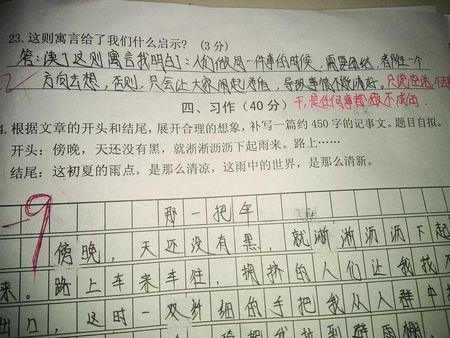 23. 这则寓言给了我们什么启示？(3 分)
答：读了这则寓言我明白了：人们做同一件事的时候，需要团结，一个
方向去想，否则，只会让大家闹起矛盾，导致事情 只说空话，
干，是任何事都做不成的.
四、习作（40 分）
4. 根据文章的开头和结尾，展开合理的想象，补写一篇约 450 字的记事文。题目自拟。
开头：傍晚，天还没有黑，就淅淅沥沥下起雨来。路上……
结尾：这初夏的雨点，是那么清凉，这雨中的世界，是那么清新。
-9
那一把伞
傍晚，天还没有黑，就淅淅沥沥下起
来。路上车来车往，拥挤的人们让我找
出口，这时一双纤细的手把我从人群中
把我拉到避雨棚